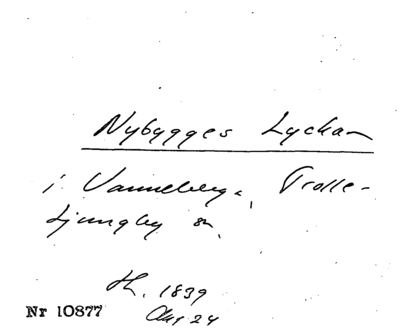 Nybygges Lyckan
i Vanneberga, Trolle-
Ljungby sn.
H. 1839
Akt 24
Nr 10877